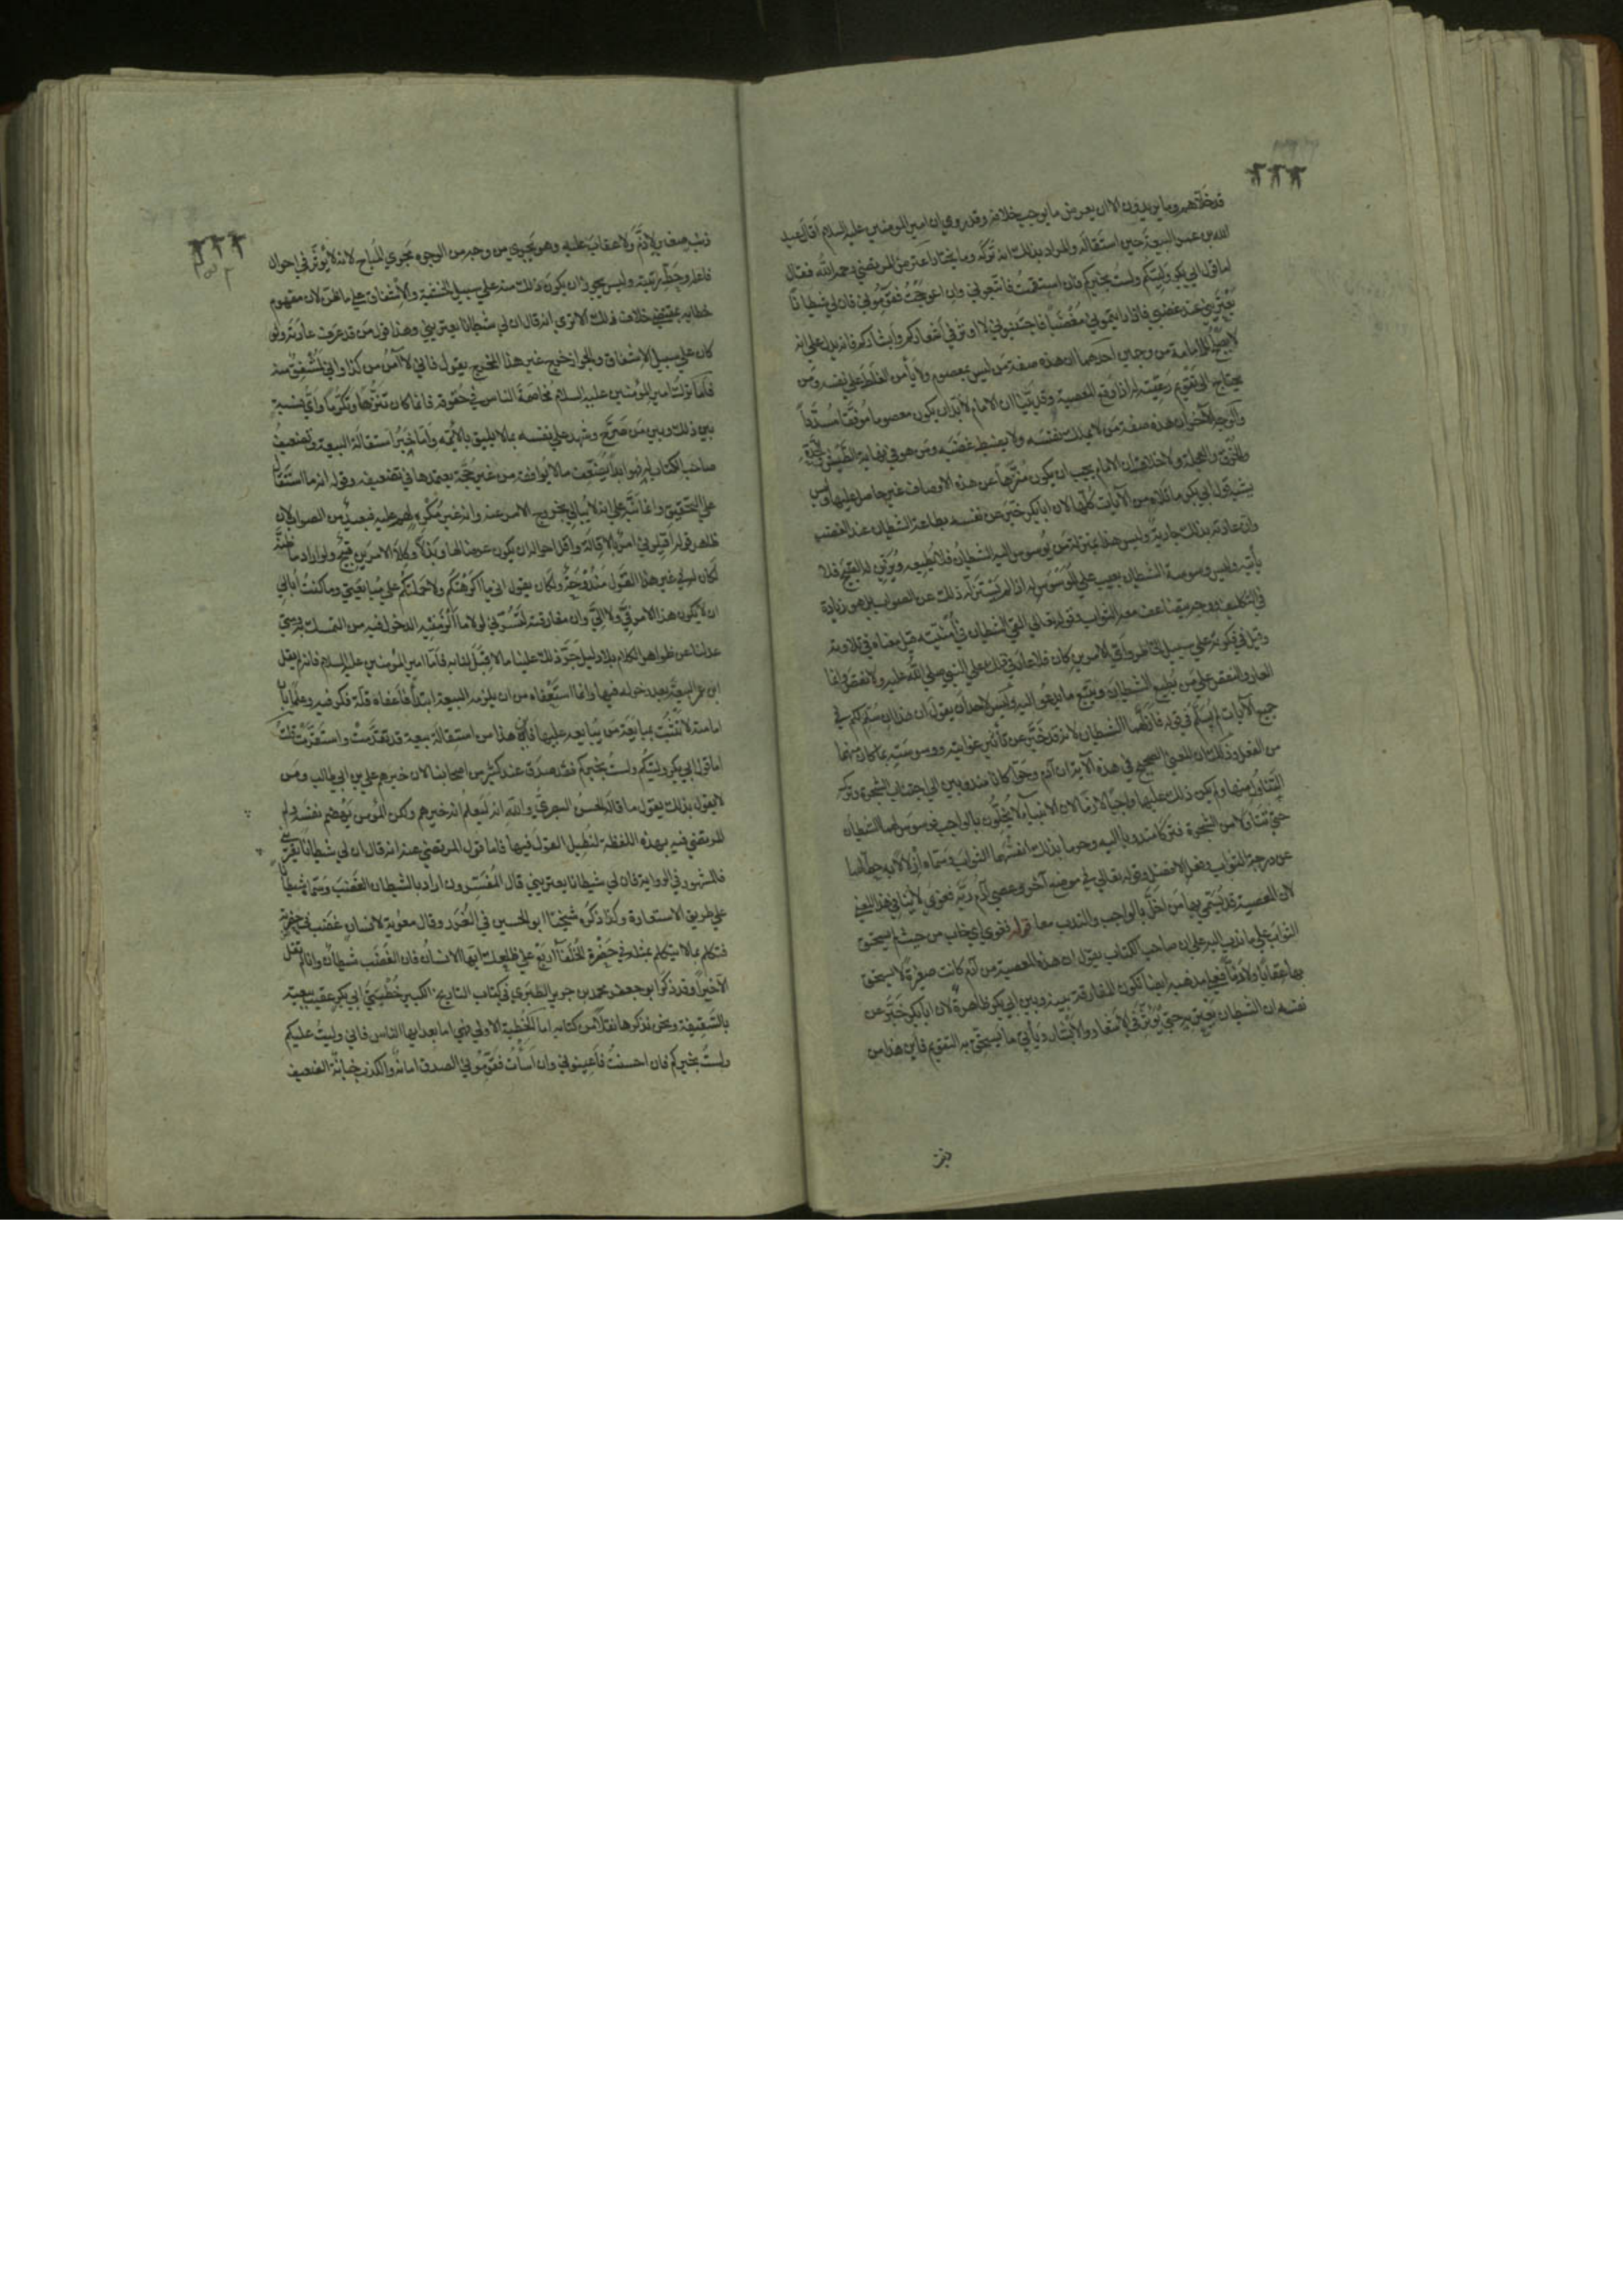 قد خلاهم وما يريدون الا ان يعرض ما يوجب خلافه وقد روي ان امير المومنين عليه السلام اقال عبد
الله بن عمر البيعة حين استقاله والمراد بذلك انه تركه وما يختار اعترض المرتضي رحمه الله فقال
اما قول ابي بكر وليتكم ولست بخيركم فان استقمت فاتبعوني وان اعوججت فقوموني فان لي شيطانا
يعتريني عند غضبي فاذا رايتموني مغضبا فاجتنبوني لا اوثر في اشعاركم وابشاركم فانه يدل علي انه
لا يصلح للامامة من وجهين احدهما ان هذه صفة من ليس بمعصوم ولا يأمن الغلط علي نفسه ومن
يحتاج الي تقويم رعيته له اذا وقع المعصية وقد بينا ان الامام لا بد ان يكون معصوما موفقا مسددا
والوجه الاخر ان هذه صفة من لا يملك نفسه ولا يضبط غضبه ومن هو في نهاية الطيش والحدة
والخرق والعجلة ولا خلاف ان الامام يجب ان يكون منزها عن هذه الاوصاف غير حاصل عليها وليس
يشبه قول ابي بكر ما تلاه من الآيات كلها لان ابا بكر خبر عن نفسه بطاعة الشيطان عند الغضب
وان عادته بذلك جارية وليس هذا بمنزلة من يوسوس اليه الشيطان فلا يطيعه ويزين له القبيح فلا
يأتيه وليس وسوسة الشيطان بعيب علي الموسوس له اذا لم يستزله ذلك عن الصواب بل هو زيادة
في التكليف ووجه يتضاعف معه الثواب وقوله تعالي القي الشيطان في أمنيته قيل معناه في تلاوته
وقيل في فكرته علي سبيل الخاطر واي الامرين كان فلا عار في ذلك علي النبي صلي الله عليه ولا نقص وانما
العار والنقص علي من يطيع الشيطان ويتبع ما يدعو اليه وليس لاحد ان يقول ان هذا ان سلم لكم في
جميع الآيات لم يسلم في قوله فازلهما الشيطان لانه قد خبر عن تأثير غوايته ووسوسته بما كان منهما
من الفعل وذلك ان المعني الصحيح في هذه الآية ان آدم وحوا كانا مندوبين الي اجتناب الشجرة وترك
التناول منها ولم يكن ذلك عليهما واجبا لازما لان الانبياء لا يخلون بالواجب فوسوس لهما الشيطان
حتي تناولا من الشجرة فتركا مندوبا اليه وحرما بذلك انفسهما الثواب وسماه ازلالا لانه حط لهما
عن درجة الثواب وفعل الافضل وقوله تعالي في موضع آخر وعصي آدم ربه فغوي لا ينافي هذا المعني
لان المعصية قد يسمي بها من اخل بالواجب والندب معا قوله فغوي اي خاب من حيث لم يستحق
الثواب علي ما ندب اليه علي ان صاحب الكتاب يقول ان هذه المعصية من آدم كانت صغيرة لا يستحق
بها عقابا ولا ذما فعلي مذهبه ايضا تكون المفارقة بينه وبين ابي بكر ظاهرة لان ابا بكر خبر عن
نفسه ان الشيطان يعتريه حتي يوثر في الاشعار والابشار ويأتي ما يستحق به التقويم فاين هذا من
ذنب صغير لا ذم ولا عقاب عليه وهو يجري من وجه من الوجوه مجري المباح لانه لا يوثر في احوال
فاعله وحط رتبته وليس يجوز ان يكون ذلك منه علي سبيل الخشية والاشفاق علي ما ظن لان مفهوم
خطابه يقتضي خلاف ذلك الا تري انه قال ان لي شيطانا يعتريني وهذا قول من قد عرف عادته ولو
كان علي سبيل الاشفاق والجواز لخرج غير هذا المخرج يقول فاني لا آمن من كذا واني لمشفق منه
فاما ترك امير المؤمنين عليه السلام مخاصمة الناس في حقوقه فانما كان تنزها وتكرما واي نسبة
بين ذلك وبين من صرح وشهد علي نفسه بما لا يليق بالائمة واما خبر استقالة البيعة وتضعيف
صاحب الكتاب له فهو ابدا يضعف ما لا يوافقه من غير حجة يعتمدها في تضعيفه وقوله انه ما استقال
علي التحقيق وانما نبه علي انه لا يبالي بخروج الامر عنه وانه غير مكره لهم عليه فبعيد من الصواب لان
ظاهر قوله اقيلوني امر بالاقالة واقل احواله ان يكون عرضا لها وبذلا وكلا الامرين قبيح ولو اراد ما ظنه
لكان له في غير هذا القول مندوحة ولكان يقول اني ما اكرهتكم ولا حملتكم علي مبايعتي وما كنت أبالي
ان لا يكون هذا الامر في ولا الي وان مفارقته لتسرني لولا ما الزمنيه الدخول فيه من التمسك به ومتي
عدلنا عن ظواهر الكلام بلا دليل جر ذلك علينا ما لا قبل لنا به فاما امير المؤمنين عليه السلام فانه لم يقل
ابن عمر البيعة بعد دخوله فيها وانما استعفاه من ان يلزمه البيعة ابتداً فاعفاه قلة فكر فيه وعلما بان
امامته لا تثبت بمبايعة من يبايعه عليها فاين هذا من استقالة بيعة قد تقدمت واستقرت قلت
اما قول ابي بكر وليتكم ولست بخيركم فقد صدق عند كثير من اصحابنا لان خيرهم علي بن ابي طالب ومن
لا يقول بذلك يقول ما قاله الحسن البصري والله انه ليعلم انه خيرهم ولكن المؤمن يهضم نفسه ولم
المرتضي فيه بهذه اللفظة لنطيل القول فيها فاما قول المرتضي عنه انه قال ان لي شيطانا يعتريني
فالمشهور في الرواية فان لي شيطانا يعتريني قال المفسرون اراد بالشيطان الغضب وسماه شيطانا
علي طريق الاستعارة وكذا ذكره شيخنا ابو الحسين في الغرر وقال معوية لانسان غضب في حضرته
فتكلم بما لا يتكلم بمثله في حضرة الخلفآ اربع علي ظلعك ايها الانسان فان الغضب شيطان وانا لم نقل
الا خيرا وقد ذكر ابو جعفر محمد بن جرير الطبري في كتاب التاريخ الكبير خطبتي ابي بكر عقيب بيعته
بالسقيفة ونحن نذكرها نقلا من كتابه اما الخطبة الاولي فهي اما بعد ايها الناس فاني وليت عليكم
ولست بخيركم فان احسنت فاعينوني وان اسأت فقوموني الصدق امانة والكذب خيانة الضعيف